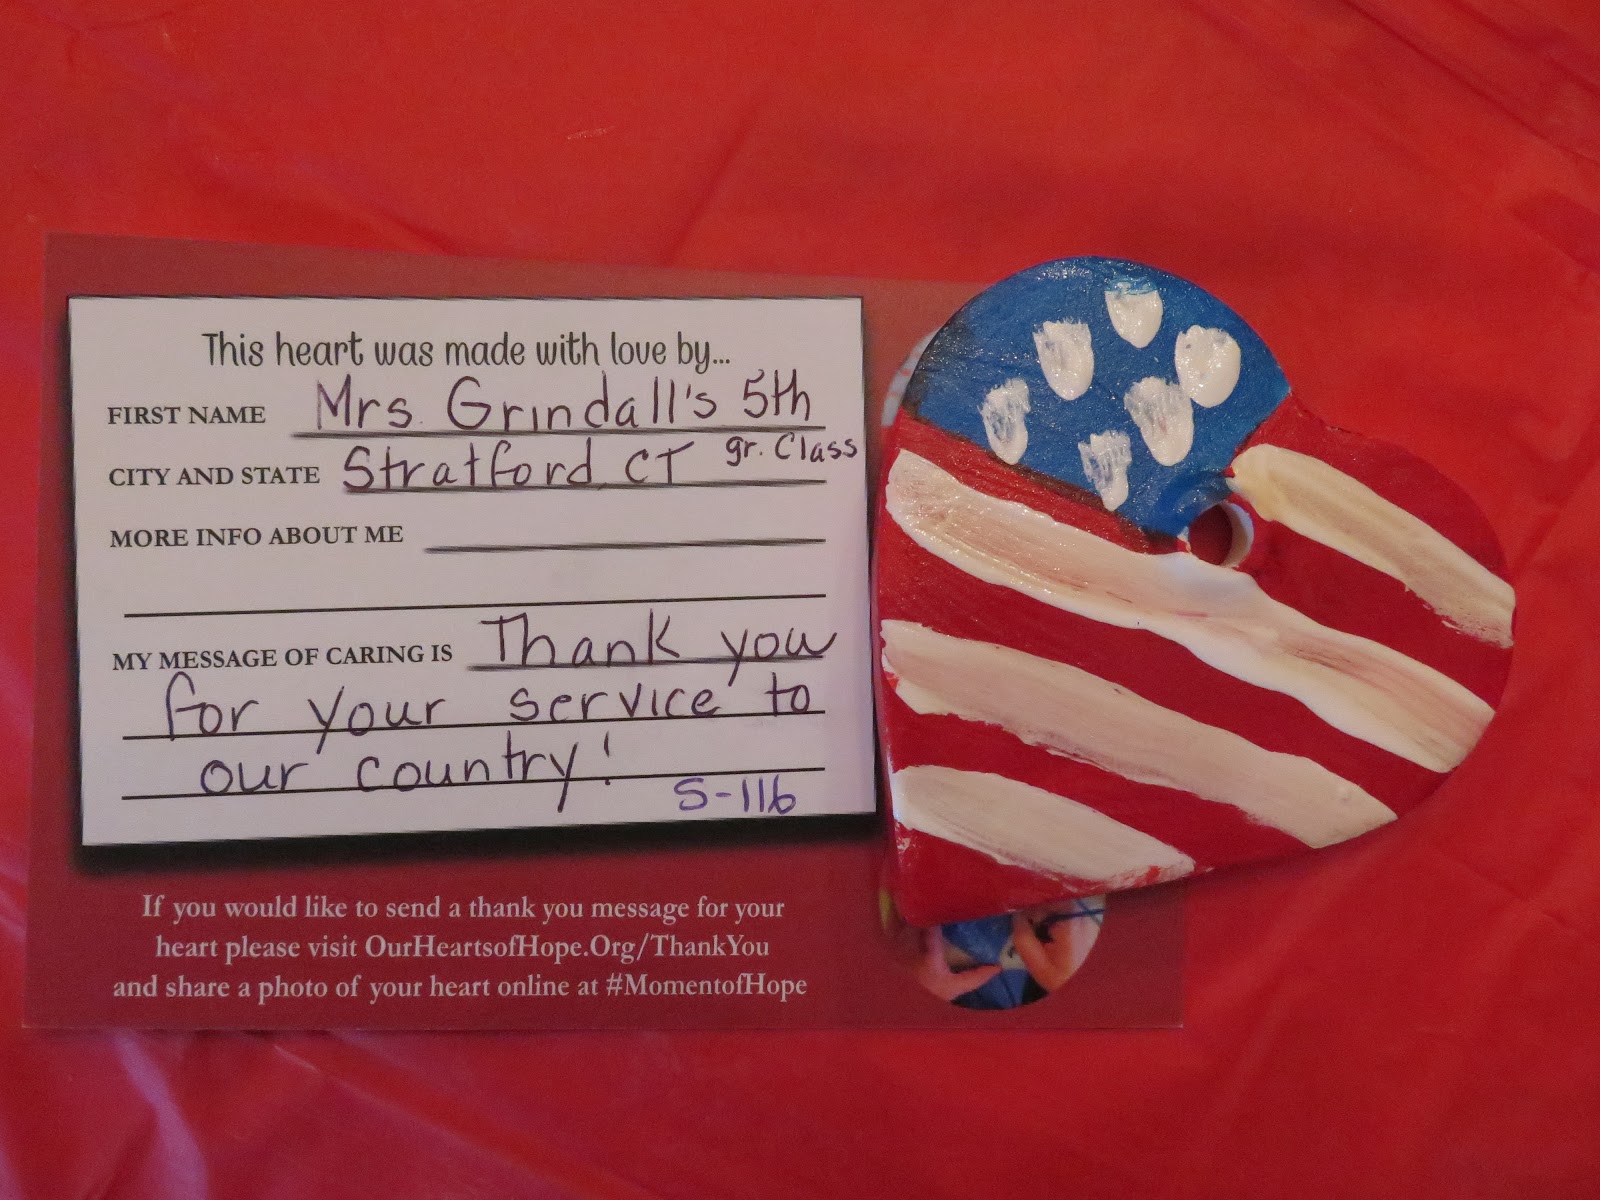 This heart was made with love by...
FIRST NAME Mrs. Grindall's 5th
gr. Class
CITY AND STATE Stratford, CT
MORE INFO ABOUT ME
MY MESSAGE OF CARING IS Thank you
for your service to
our country!
S-116
If you would like to send a thank you message for your
heart please visit OurHeartsofHope.Org/ThankYou
and share a photo of your heart online at #MomentofHope